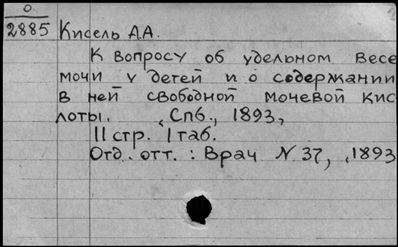 0
2885 Кисель А.А.
К вопросу об удельном весе
мочи у детей и о содержании
в ней свободной мочевой кис
лоты. Спб., 1893,
11 стр. 1 таб.
Отд. отт. : Врач N 37, 1893